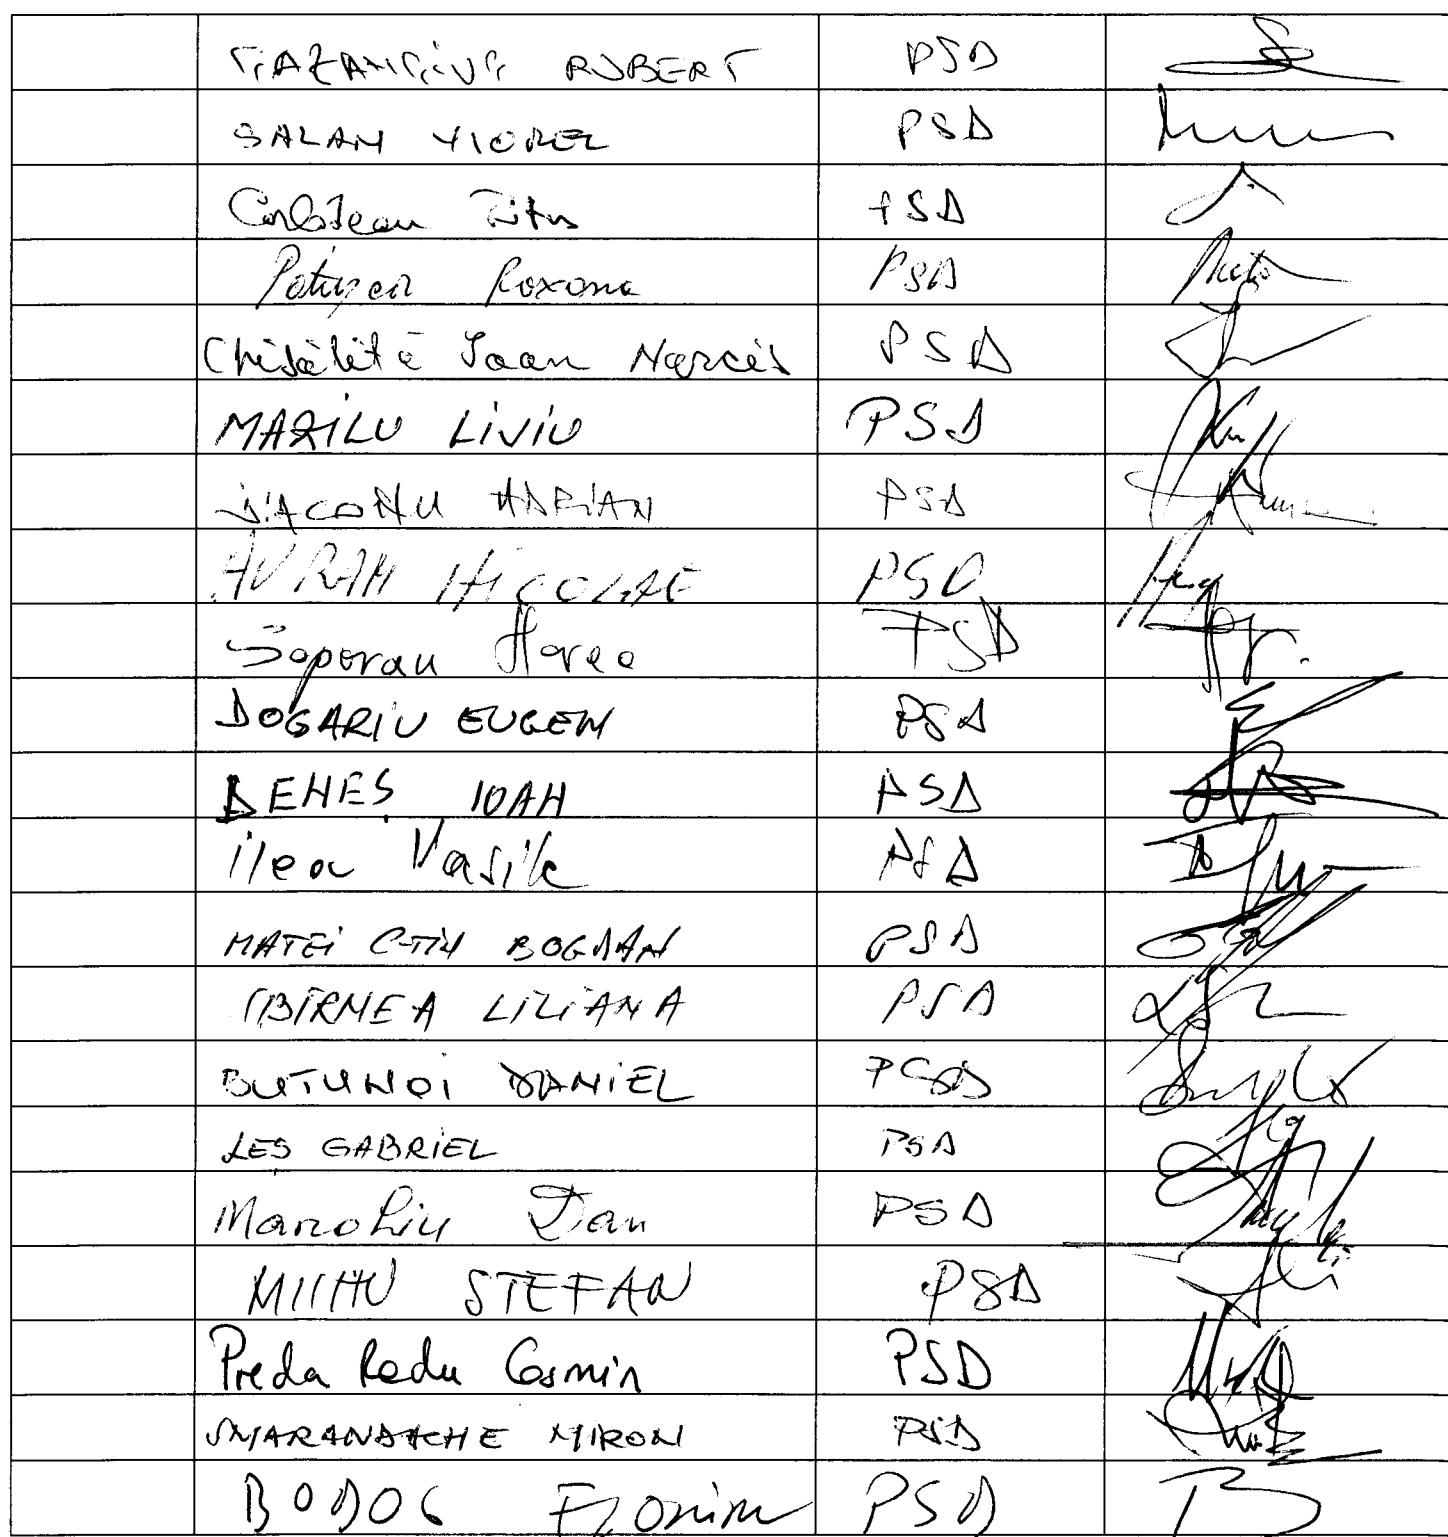 CAZANCIUC ROBERT PSD
SALAN VIOREL PSD
Corlățean Titus PSD
Pațurcă Roxana PSD
Chisăliță Ioan Narcis PSD
MAZILU LIVIU PSD
DIACONU ADRIAN PSD
AVRAM NICOLAE PSD
Soporan Horea PSD
DOGARIU EUGEN PSD
DENEȘ IOAN PSD
Ilea Vasile PSD
MATEI C-TIN BOGDAN PSD
SBÎRNEA LILIANA PSD
BUTUNOI DANIEL PSD
LEȘ GABRIEL PSD
Manoliu Dan PSD
MIHU STEFAN PSD
Preda Radu Cosmin PSD
SMARANDACHE MIRON PSD
BODOG Florian PSD